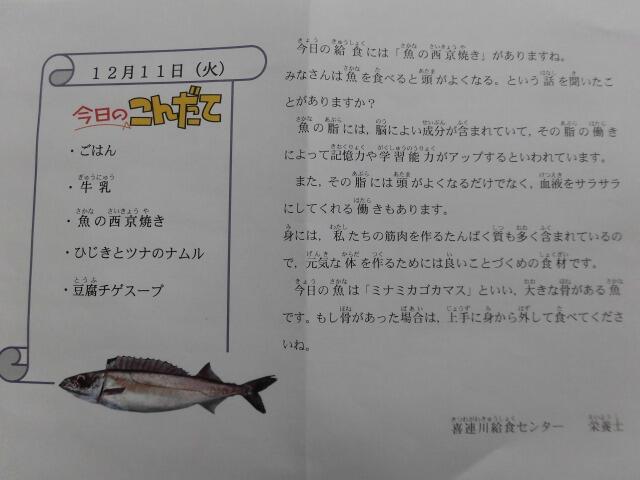 12月11日(火)
今日のこんだて
・ごはん
・牛乳
・魚の西京焼き
・ひじきとツナのナムル
・豆腐チゲスープ
今日の給食には「魚の西京焼き」がありますね。
みなさんは魚を食べると頭がよくなる。という話を聞いたこ
とがありますか?
魚の脂には,脳によい成分が含まれていて,その脂の働き
によって記憶力や学習能力がアップするといわれています。
また,その脂には頭がよくなるだけでなく,血液をサラサラ
にしてくれる働きもあります。
身には,私たちの筋肉を作るたんぱく質も多く含まれているの
で,元気な体を作るためには良いことづくめの食材です。
今日の魚は「ミナミカゴカマス」といい,大きな骨がある魚
です。もし骨があった場合は,上手に身から外して食べてくださ
いね。
喜連川給食センター 栄養士